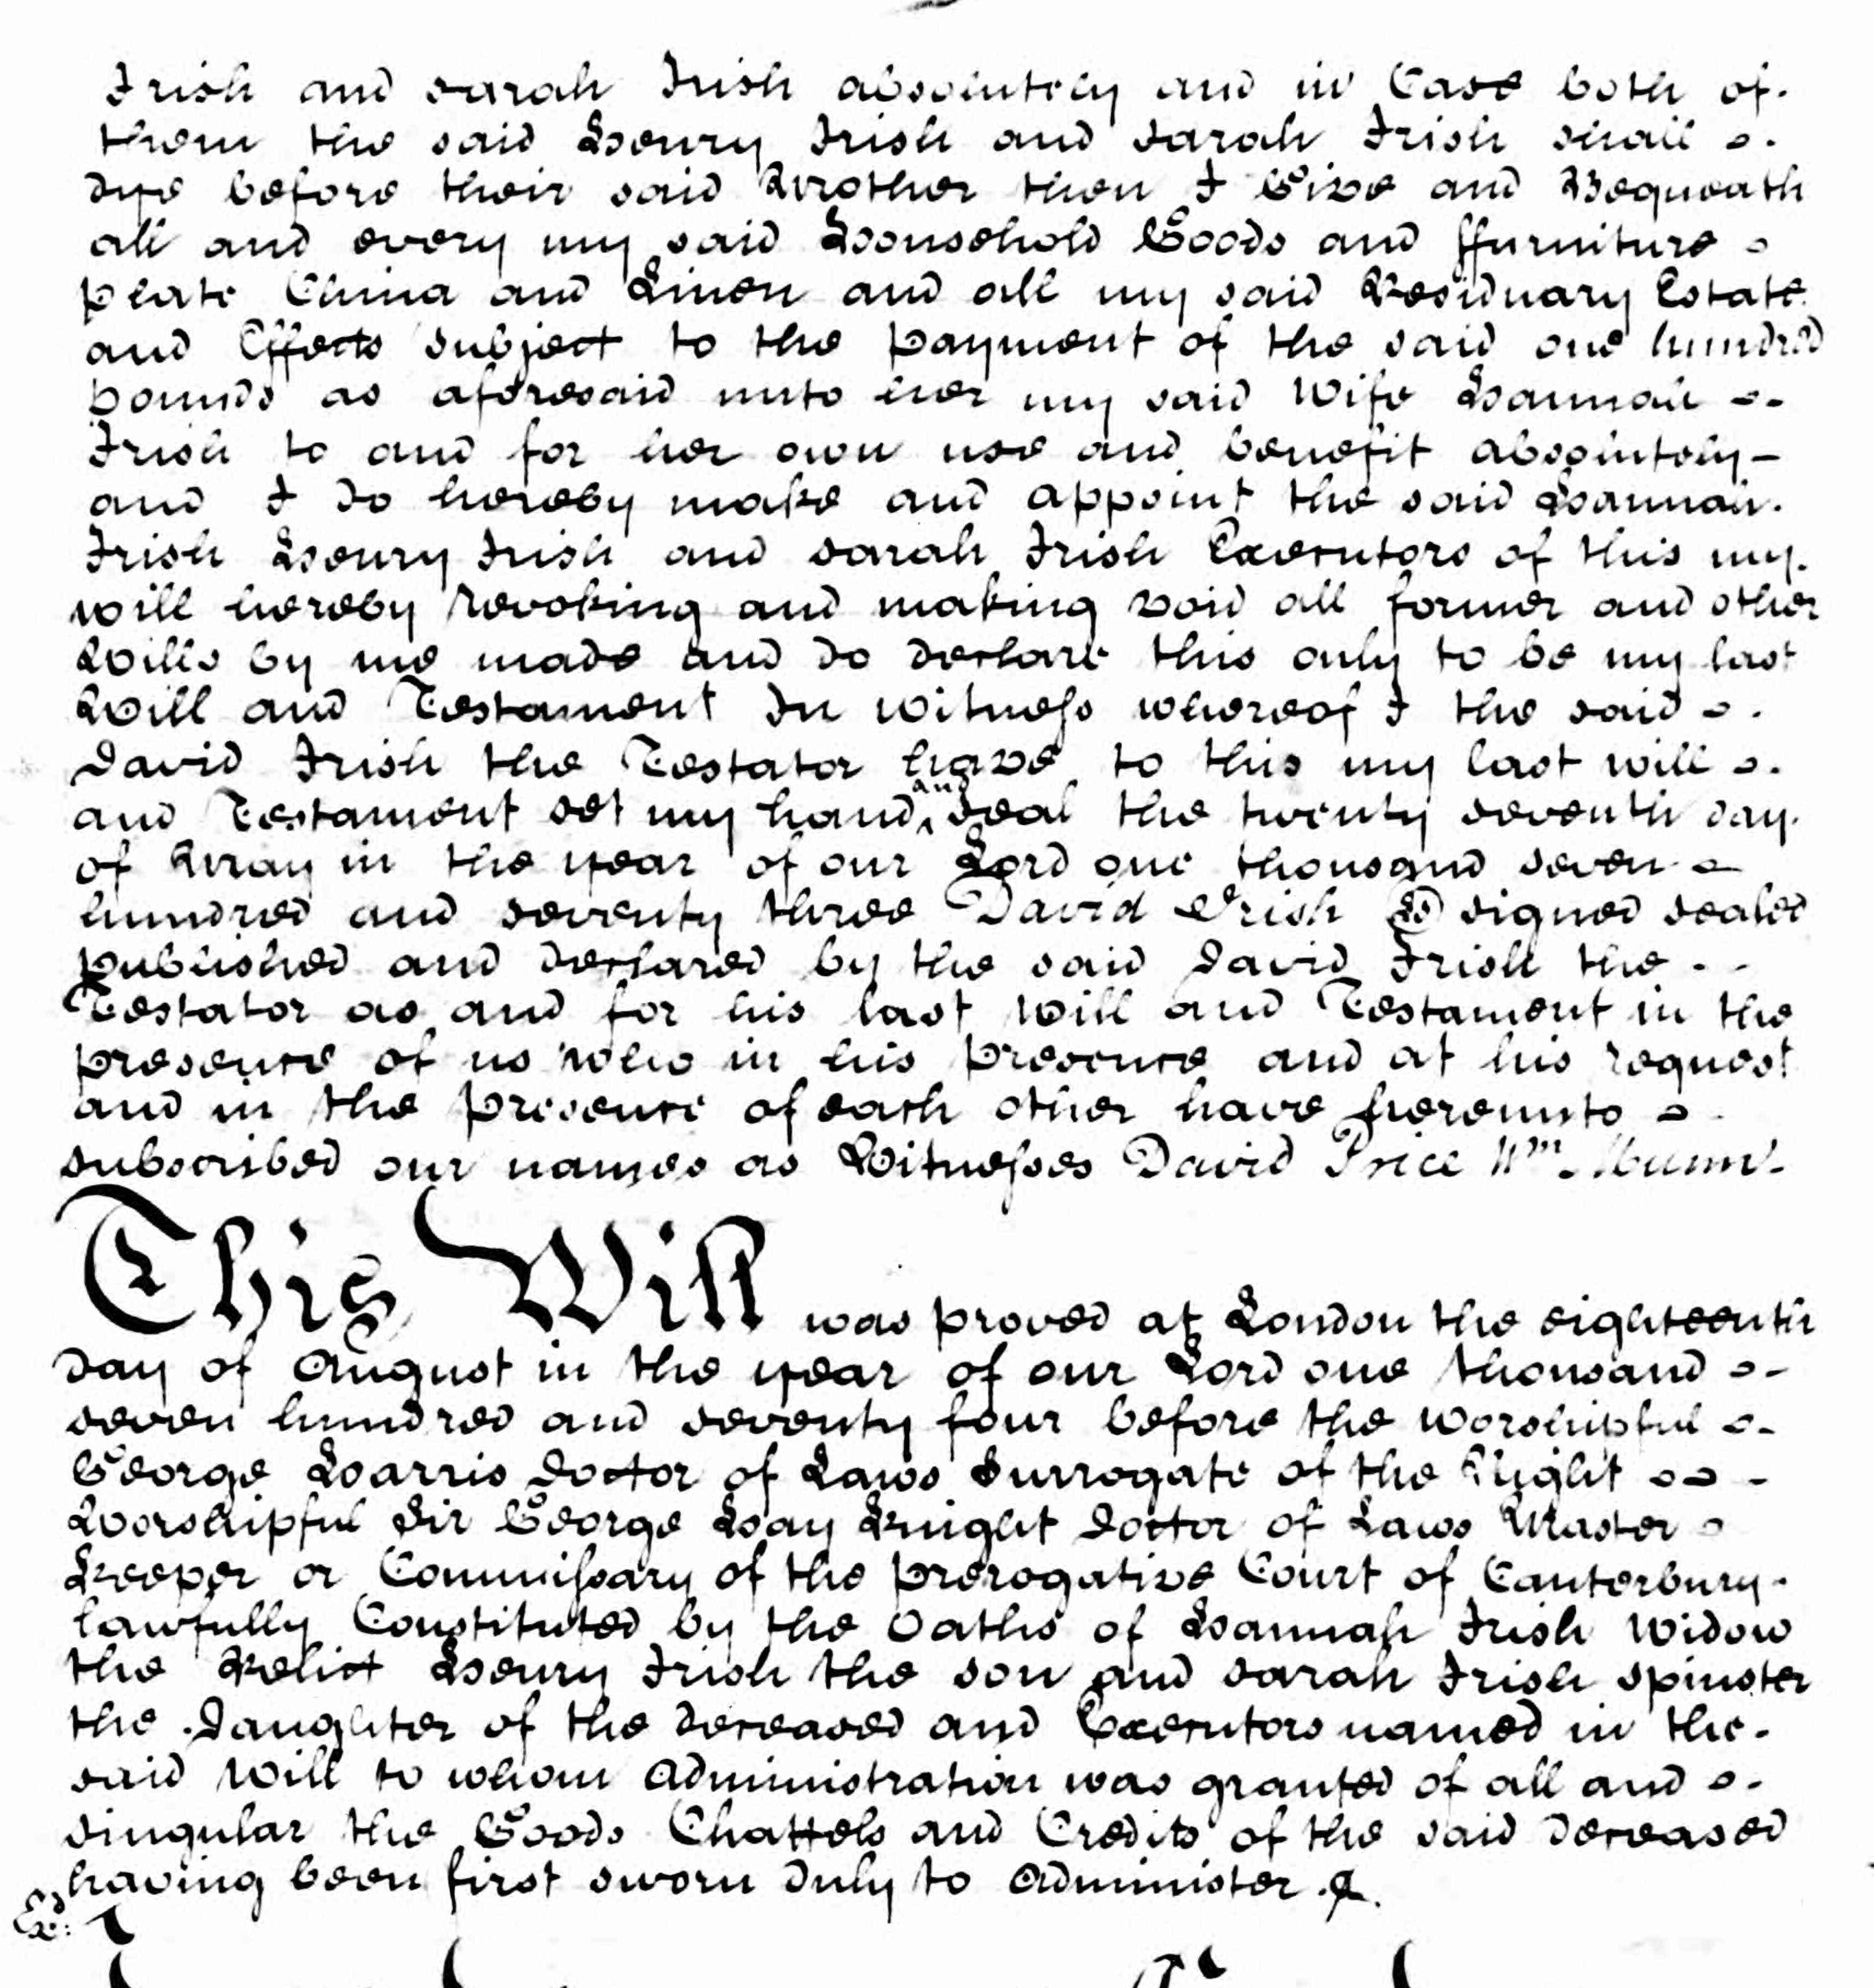 Irish and Sarah Irish absolutely and in Case both of
them the said Henry Irish and Sarah Irish shall
dye before their said Mother then I Give and Bequeath
all and every my said Household Goods and ffurniture
plate China and Linen and all my said Residuary Estate
and Effects subject to the payment of the said one hundred
pounds as aforesaid unto her my said Wife Hannah
Irish to and for her own use and benefit absolutely
and I do hereby make and appoint the said Hannah
Irish Henry Irish and Sarah Irish Executors of this my
will hereby revoking and making void all former and other
Wills by me made and do declare this only to be my last
Will and Testament In Witness whereof I the said
David Irish the Testator have to this my last will
and Testament set my hand and Seal the twenty seventh day
of May in the year of our Lord one thousand seven
hundred and seventy three David Irish LS signed sealed
published and declared by the said David Irish the
Testator as and for his last Will and Testament in the
presence of us who in his presence and at his request
and in the presence of each other have hereunto
subscribed our names as Witnesses David Price Wm. Munn
This Will was proved at London the eighteenth
day of August in the year of our Lord one thousand
seven hundred and seventy four before the Worshipful
George Harris Doctor of Laws Surrogate of the Right
Worshipful Sir George Hay Knight Doctor of Laws Master
Keeper or Commissary of the prerogative Court of Canterbury
lawfully Constituted by the Oaths of Hannah Irish Widow
the Relict Henry Irish the son and Sarah Irish spinster
the Daughter of the deceased and Executors named in the
said Will to whom Administration was granted of all and
singular the Goods Chattels and Credits of the said deceased
having been first sworn duly to Administer
Exd: